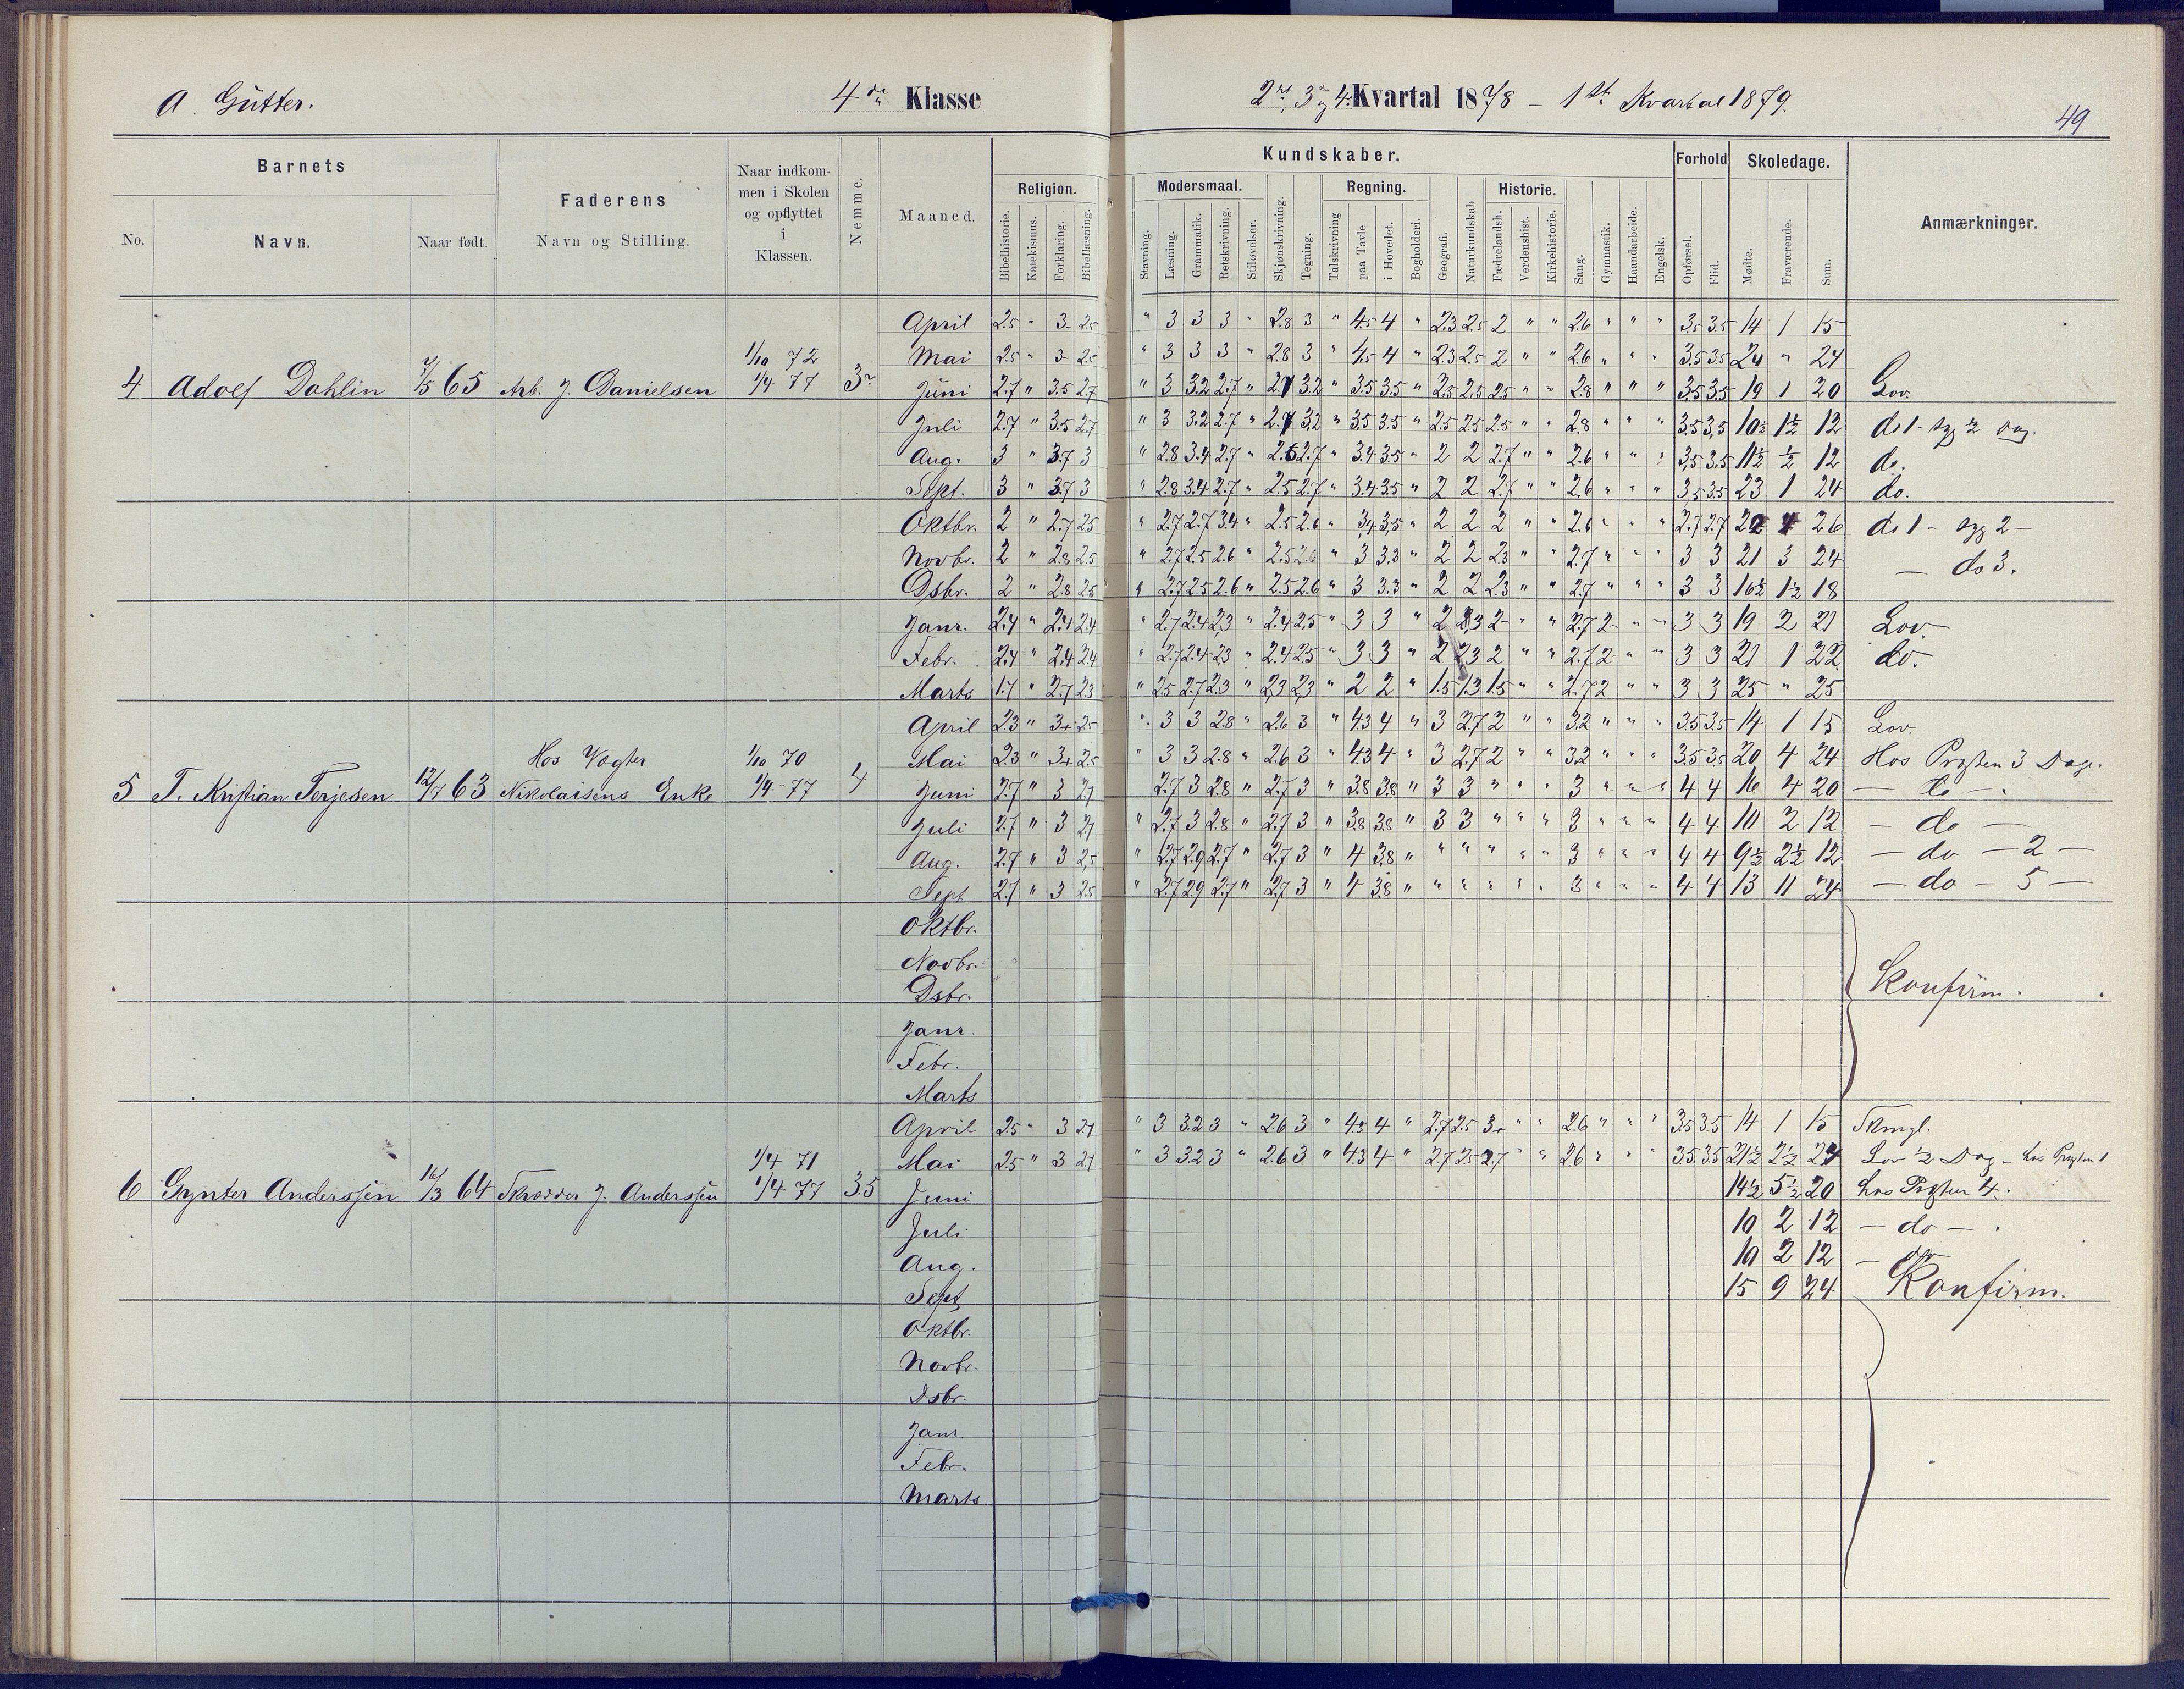 A. Gütter. 4de Klasse 2det, 3de og 4de Kvartal 1878 - 1ste Kvartal 1879.
49
Barnets
Faderens
Naar indkommen i Skolen og opflyttet i Klassen.
Nemme.
Maaned.
Kundskaber.
Forhold
Skoledage.
Anmærkninger.
Religion.
Modersmaal.
Regning.
Historie.
No.
Navn.
Naar født.
Navn og Stilling.
Bibelhistorie. Katekismus. Forklaring. Bibellæsning. Stavning. Læsning. Grammatik. Retskrivning. Stiløvelser. Skjønskrivning. Tegning. Talskrivning paa Tavle i Hovedet. Bogholderi. Geografi. Naturkundskab Fædrelandsh. Verdenshist. Kirkehistorie. Sang. Gymnastik. Haandarbeide. Engelsk. Opførsel. Flid. Mødte. Fraværende. Sum.
April 2.5 " 3- 2.5 " 3 3 3 " 2.8 3 " 4.5 4 " 2.3 2.5 2 " " 2.6 " " " 3.5 3.5 14 1 15
1/10 72 Mai 2.5 " 3- 2.5 " 3 3 3 " 2.8 3 " 4.5 4 " 2.3 2.5 2 " " 2.6 " " " 3.5 3.5 24 " 24
4 Adolf Dahlin 7/5 65 Arb. J. Danielsen 1/4 77 3 Juni 2.7 " 3.5 2.7 " 3 3.2 2.7 " 2.7 3.2 " 3.5 3.5 " 2.5 2.5 2.5 " " 2.8 " " " 3.5 3.5 19 1 20 Lov.
Juli 2.7 " 3.5 2.7 " 3 3.2 2.7 " 2.7 3.2 " 3.5 3.5 " 2.5 2.5 2.5 " " 2.8 " " " 3.5 3.5 10½ 1½ 12 do 1 - syg ½ Dag.
Aug. 3 " 3.7 3 " 2.8 3.4 2.7 " 2.5 2.7 " 3.4 3.5 " 2 2 2.7 " " 2.6 " " " 3.5 3.5 11½ ½ 12 do.
Sept. 3 " 3.7 3 " 2.8 3.4 2.7 " 2.5 2.7 " 3.4 3.5 " 2 2 2.7 " " 2.6 " " " 3.5 3.5 23 1 24 do.
Oktbr. 2 " 2.7 2.5 " 2.7 2.7 3.4 " 2.5 2.6 " 3.4 3.5 " 2 2 2 " " 2.6 " " " 2.7 2.7 22 4 26 do 1 - syg 2 -
Novbr. 2 " 2.8 2.5 " 2.7 2.5 2.6 " 2.5 2.6 " 3 3.3 " 2 2 2.3 " " 2.7 " " " 3 3 21 3 24 - do 3.
Dsbr. 2 " 2.8 2.5 " 2.7 2.5 2.6 " 2.5 2.6 " 3 3.3 " 2 2 2.3 " " 2.7 " " " 3 3 16½ 1½ 18
Janr. 2.4 " 2.4 2.4 " 2.7 2.4 2.3 " 2.4 2.5 " 3 3 " 2 2.3 2 " " 2.7 2 " " 3 3 19 2 21 Lov.
Febr. 2.4 " 2.4 2.4 " 2.7 2.4 2.3 " 2.4 2.5 " 3 3 " 2 2.3 2 " " 2.7 2 " " 3 3 21 1 22 do.
Marts 1.7 " 2.7 2.3 " 2.5 2.7 2.3 " 2.3 2.3 " 2 2 " 1.5 1.3 1.5 " " 2.7 2 " " 3 3 25 " 25
April 2.3 " 3+ 2.5 " 3 3 2.8 " 2.6 3 " 4.3 4 " 3 2.7 2 " " 3.2 " " " 3.5 3.5 14 1 15 Lov.
Hos Vogter 1/10 70 Mai 2.3 " 3+ 2.5 " 3 3 2.8 " 2.6 3 " 4.3 4 " 3 2.7 2 " " 3.2 " " " 3.5 3.5 20 4 24 Hos Presten 3 Dage.
5 T. Kristian Terjesen 12/7 63 Nikolaisens Enke 1/4 - 77 4 Juni 2.7 " 3 2.7 2.7 3 2.8 " 2.7 3 " 3.8 3.8 " 3 3 " " " 3 " " " 4 4 16 4 20 - do -
Juli 2.7 " 3 2.7 " 2.7 3 2.8 " 2.7 3 " 3.8 3.8 " 3 3 " " " 3 " " " 4 4 10 2 12 - do -
Aug. 2.7 " 3 2.5 " 2.7 2.9 2.7 " 2.7 3 " 4 3.8 " " " " " " 3 " " " 4 4 9½ 2½ 12 - do - 2 -
Sept 2.7 " 3 2.5 " 2.7 2.9 2.7 " 2.7 3 " 4 3.8 " " " " " " 3 " " " 4 4 13 11 24 - do - 5 -
Oktbr.
Novbr.
Dsbr. Konfirm.
Janr.
Febr.
Marts
April 2.5 " 3 2.7 " 3 3.2 3 " 2.6 3 " 4.3 4 " 2.7 2.5 3+ " " 2.6 " " " 3.5 3.5 14 1 15
1/4 71 Mai 2.5 " 3 2.7 " 3 3.2 3 " 2.6 3 " 4.3 4 " 2.7 2.5 2.7 " " 2.6 " " " 3.5 3.5 21½ 2½ 24 Lov ½ Dag - hos Presten 1
6 Gynter Anderssen 16/3 64 Skrædder J. Anderssen 1/4 77 3.5 Juni 14½ 5½ 20 hos Presten 4.
Juli 10 2 12 - do -
Aug. 10 2 12 - do
Sept 15 9 24 Konfirm.
Oktbr.
Novbr.
Dsbr.
Janr.
Febr.
Marts